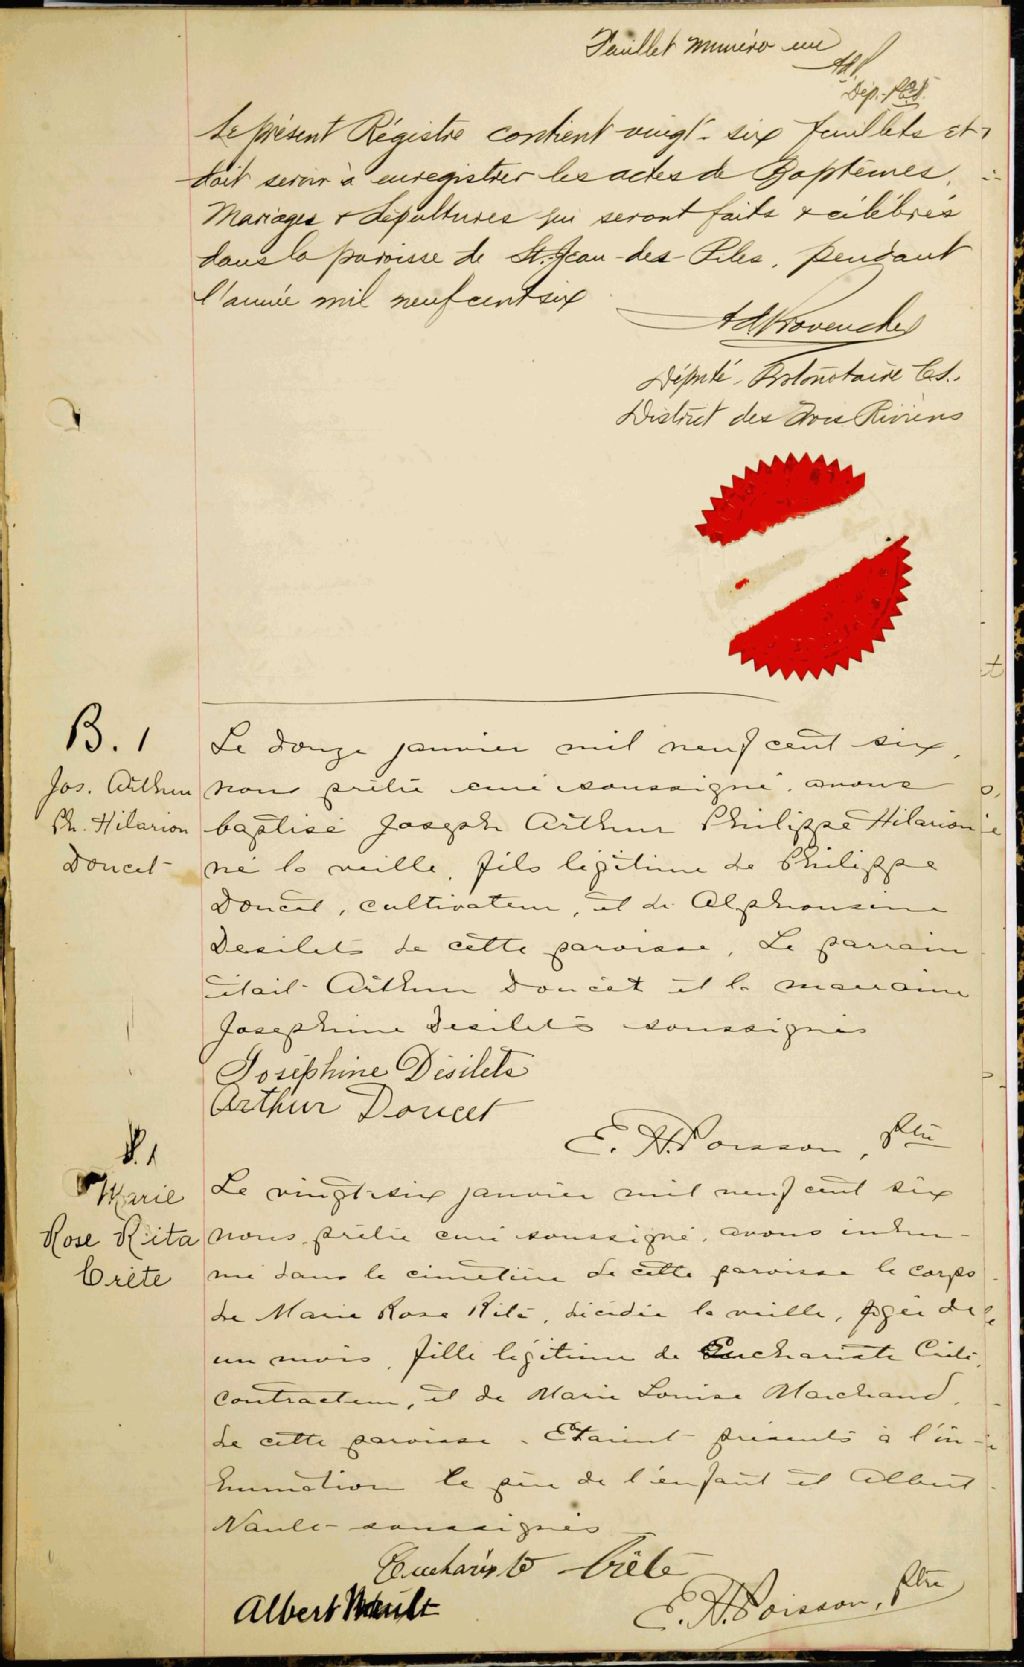 Feuillet numéro un
Dép. P.C.S.
Le présent Régistre contient vingt-six feuillets et
doit servir à enregistrer les actes de Baptêmes,
Mariages & Sépultures qui seront faits & célébrés
dans la paroisse de St. Jean-des-Piles, pendant
l'année mil neuf cent six
Ad Provencher
Député-Protonotaire C.S.
District des Trois Rivières
B. 1
Jos. Arthur
Ph. Hilarion
Doucet
Le douze janvier mil neuf cent six,
nous prêtre curé soussigné, avons
baptisé Joseph Arthur Philippe Hilarion
né la veille, fils légitime de Philippe
Doucet, cultivateur, et de Alphonsine
Desilets de cette paroisse. Le parrain
était Arthur Doucet et la marraine
Josephine Desilets soussignés
Joséphine Désilets
Arthur Doucet
E. H. Poisson, ptre
S. 1
Marie
Rose Rita
Crête
Le vingt-six janvier mil neuf cent six
nous, prêtre curé soussigné, avons inhu-
mé dans le cimetière de cette paroisse le corps
de Marie Rose Rita, décédée la veille, agée de
un mois, fille légitime de Euchariste Crête,
contracteur, et de Marie Louise Marchand,
de cette paroisse. Etaient présents à l'in-
humation le père de l'enfant et Albert
Nault soussignés
Euchariste Crête
Albert Nault
E. H. Poisson, ptre